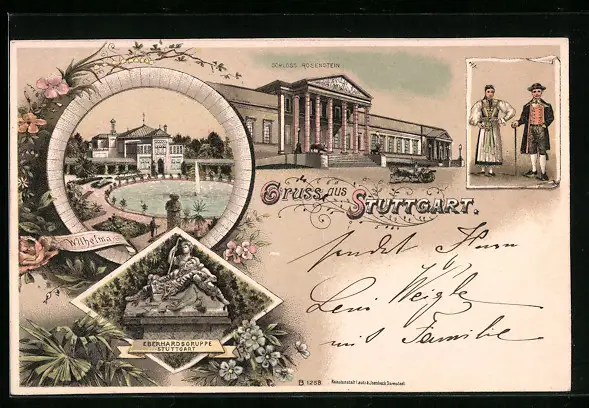 SCHLOSS ROSENSTEIN
Gruss aus
STUTTGART.
Wilhelma
EBERHARDSGRUPPE
STUTTGART
sendet Herrn
Leni Weigle
mit Familie
B 1258
Kunstanstalt Lautz & Isenbeck Darmstadt